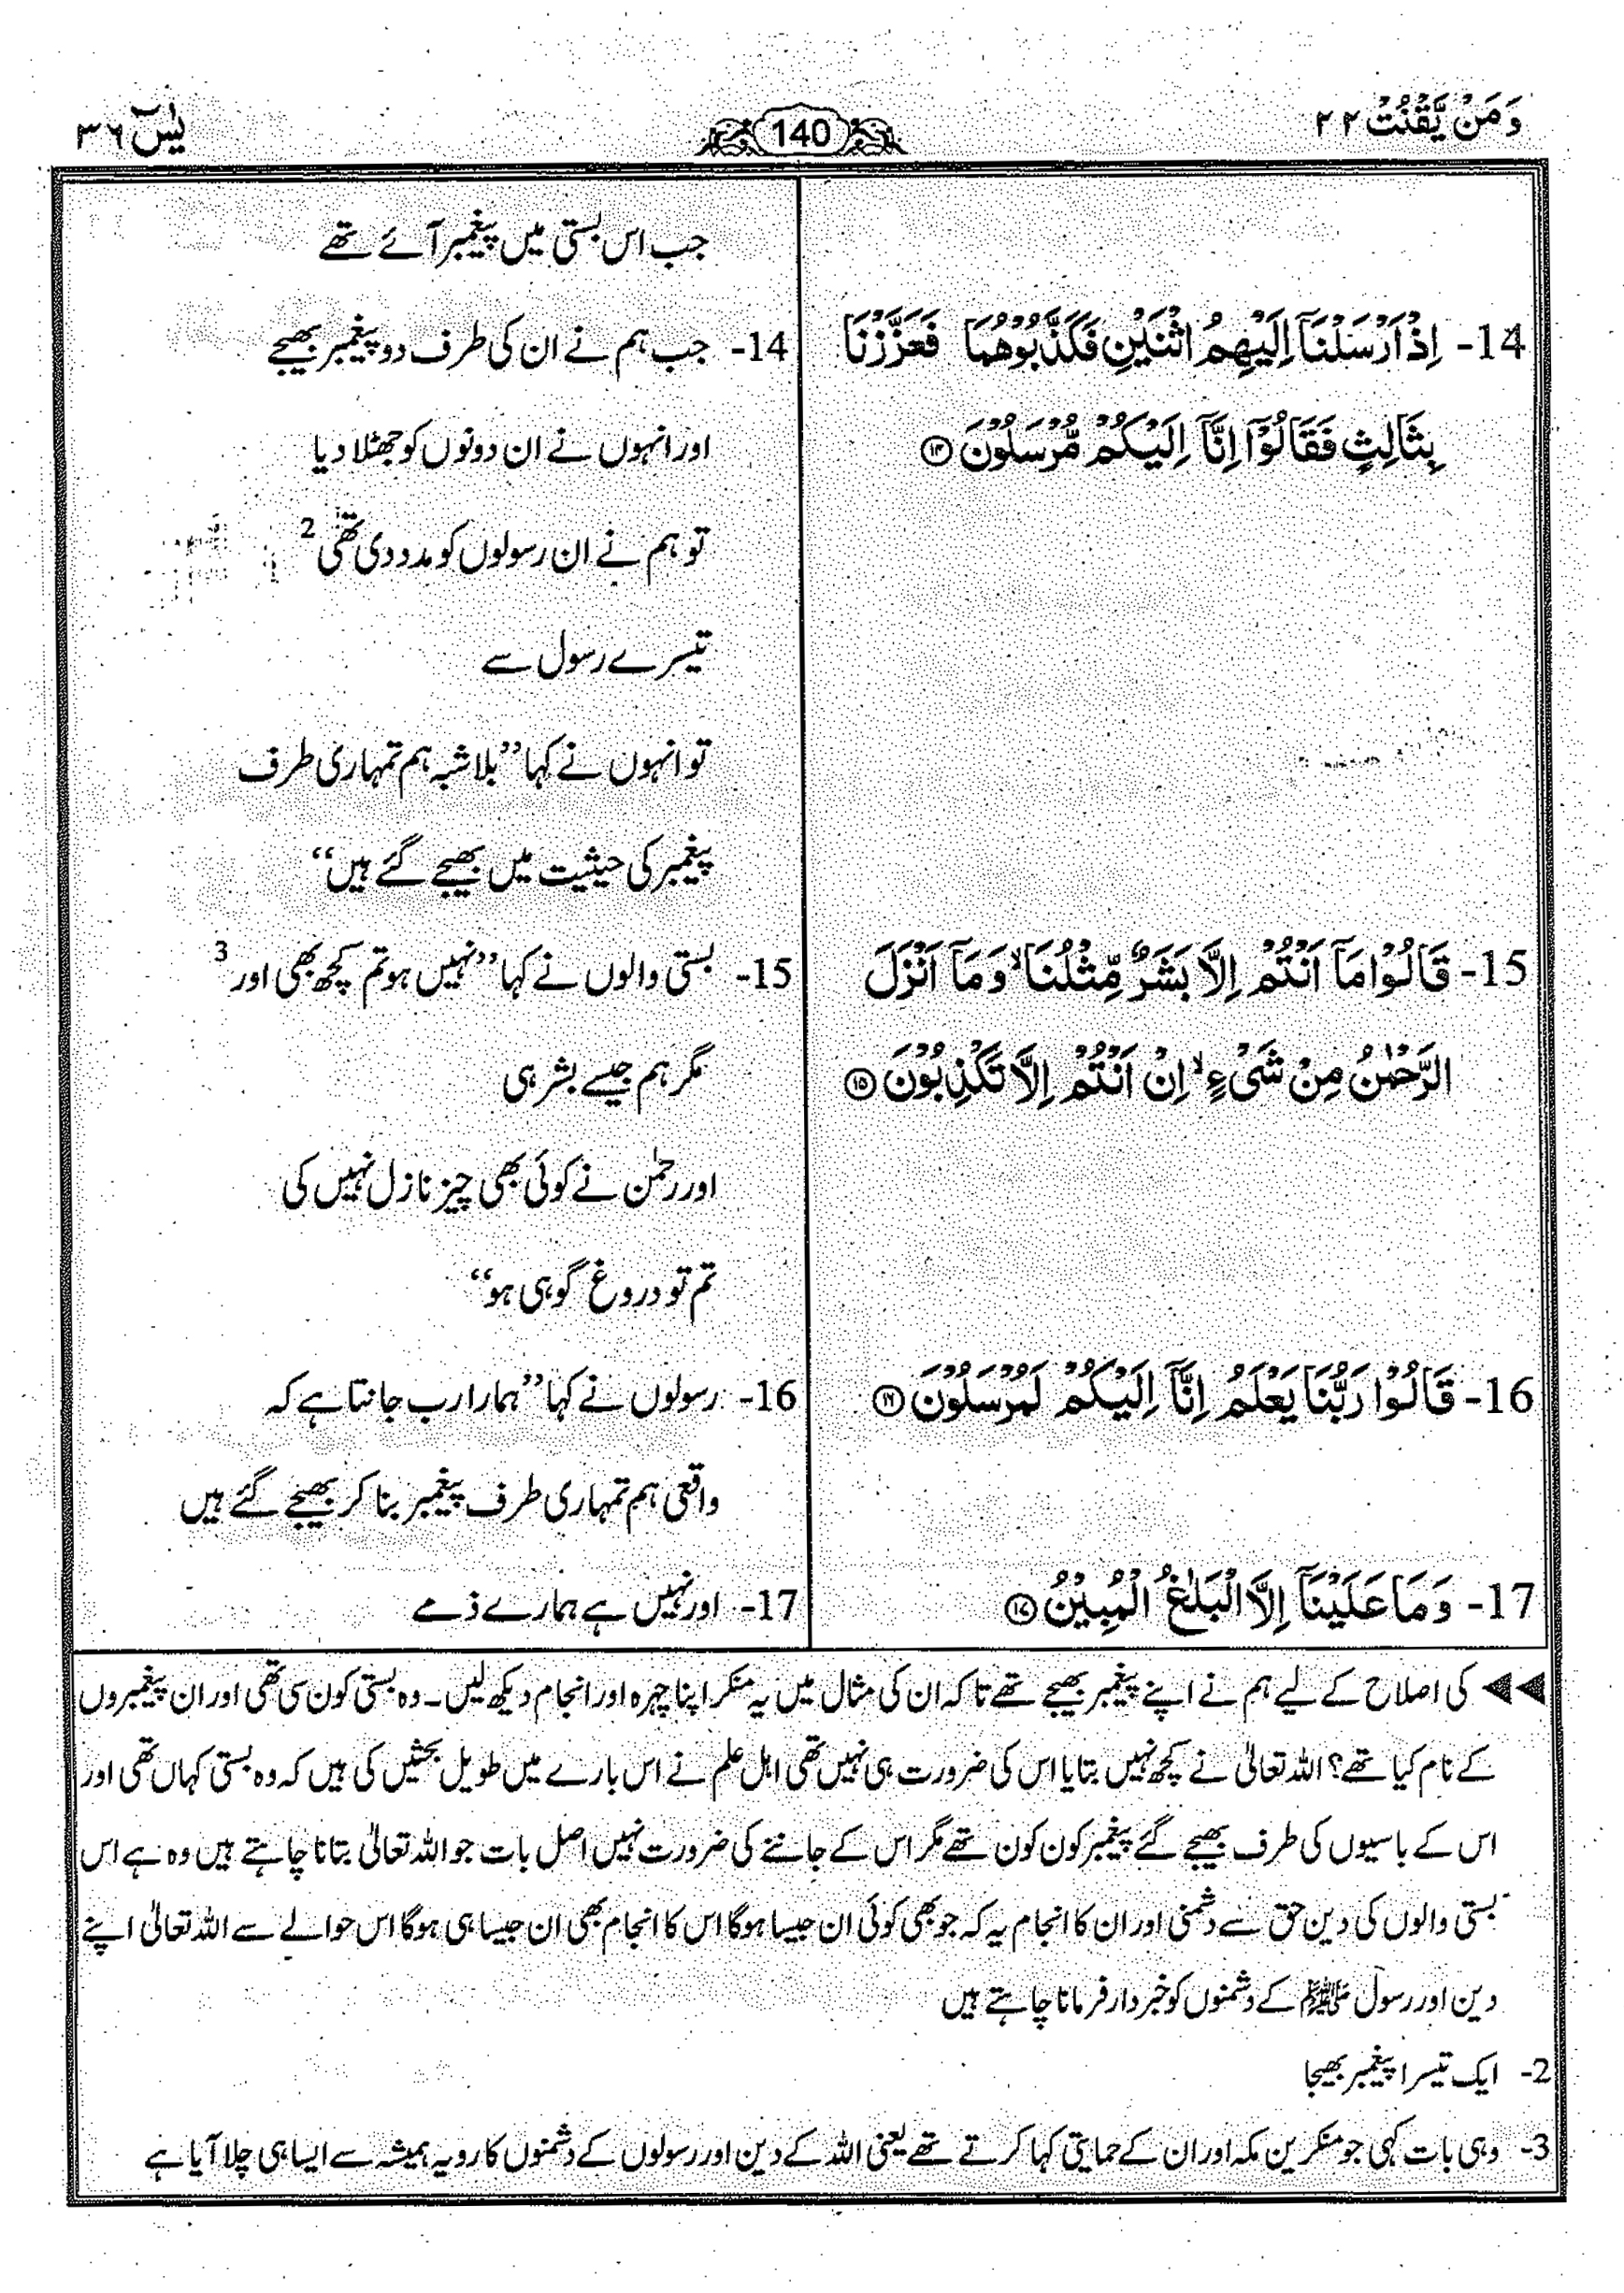 وَمَنْ يَّقْنُتْ ۲۲
140
يٰسٓ ۳۶
جب اس بستی میں پیغمبر آئے تھے
14- اِذْ اَرْسَلْنَآ اِلَيْهِمُ اثْنَيْنِ فَكَذَّبُوْهُمَا فَعَزَّزْنَا
بِثَالِثٍ فَقَالُوْٓا اِنَّآ اِلَيْكُمْ مُّرْسَلُوْنَ ⑭
14- جب ہم نے ان کی طرف دو پیغمبر بھیجے
اور انہوں نے ان دونوں کو جھٹلا دیا
تو ہم نے ان رسولوں کو مدد دی تھی 2
تیسرے رسول سے
تو انہوں نے کہا ’’بلا شبہ ہم تمہاری طرف
پیغمبر کی حیثیت میں بھیجے گئے ہیں‘‘
15- قَالُوْا مَآ اَنْتُمْ اِلَّا بَشَرٌ مِّثْلُنَا ۙ وَمَآ اَنْزَلَ
الرَّحْمٰنُ مِنْ شَيْءٍ ۙ اِنْ اَنْتُمْ اِلَّا تَكْذِبُوْنَ ⑮
15- بستی والوں نے کہا ’’نہیں ہو تم کچھ بھی اور 3
مگر ہم جیسے بشر ہی
اور رحمٰن نے کوئی بھی چیز نازل نہیں کی
تم تو دروغ گو ہی ہو‘‘
16- قَالُوْا رَبُّنَا يَعْلَمُ اِنَّآ اِلَيْكُمْ لَمُرْسَلُوْنَ ⑯
16- رسولوں نے کہا ’’ہمارا رب جانتا ہے کہ
واقعی ہم تمہاری طرف پیغمبر بنا کر بھیجے گئے ہیں
17- وَمَا عَلَيْنَآ اِلَّا الْبَلٰغُ الْمُبِيْنُ ⑰
17- اور نہیں ہے ہمارے ذمے
◀◀ کی اصلاح کے لیے ہم نے اپنے پیغمبر بھیجے تھے تاکہ ان کی مثال میں یہ منکر اپنا چہرہ اور انجام دیکھ لیں۔ وہ بستی کون سی تھی اور ان پیغمبروں
کے نام کیا تھے؟ اللہ تعالیٰ نے کچھ نہیں بتایا اس کی ضرورت ہی نہیں تھی اہل علم نے اس بارے میں طویل بحثیں کی ہیں کہ وہ بستی کہاں تھی اور
اس کے باسیوں کی طرف بھیجے گئے پیغمبر کون کون تھے مگر اس کے جاننے کی ضرورت نہیں اصل بات جو اللہ تعالیٰ بتانا چاہتے ہیں وہ ہے اس
بستی والوں کی دین حق سے دشمنی اور ان کا انجام یہ کہ جو بھی کوئی ان جیسا ہوگا اس کا انجام بھی ان جیسا ہی ہوگا اس حوالے سے اللہ تعالیٰ اپنے
دین اور رسول ﷺ کے دشمنوں کو خبردار فرمانا چاہتے ہیں
2- ایک تیسرا پیغمبر بھیجا
3- وہی بات کہی جو منکرین مکہ اور ان کے حمایتی کہا کرتے تھے یعنی اللہ کے دین اور رسولوں کے دشمنوں کا رویہ ہمیشہ سے ایسا ہی چلا آیا ہے